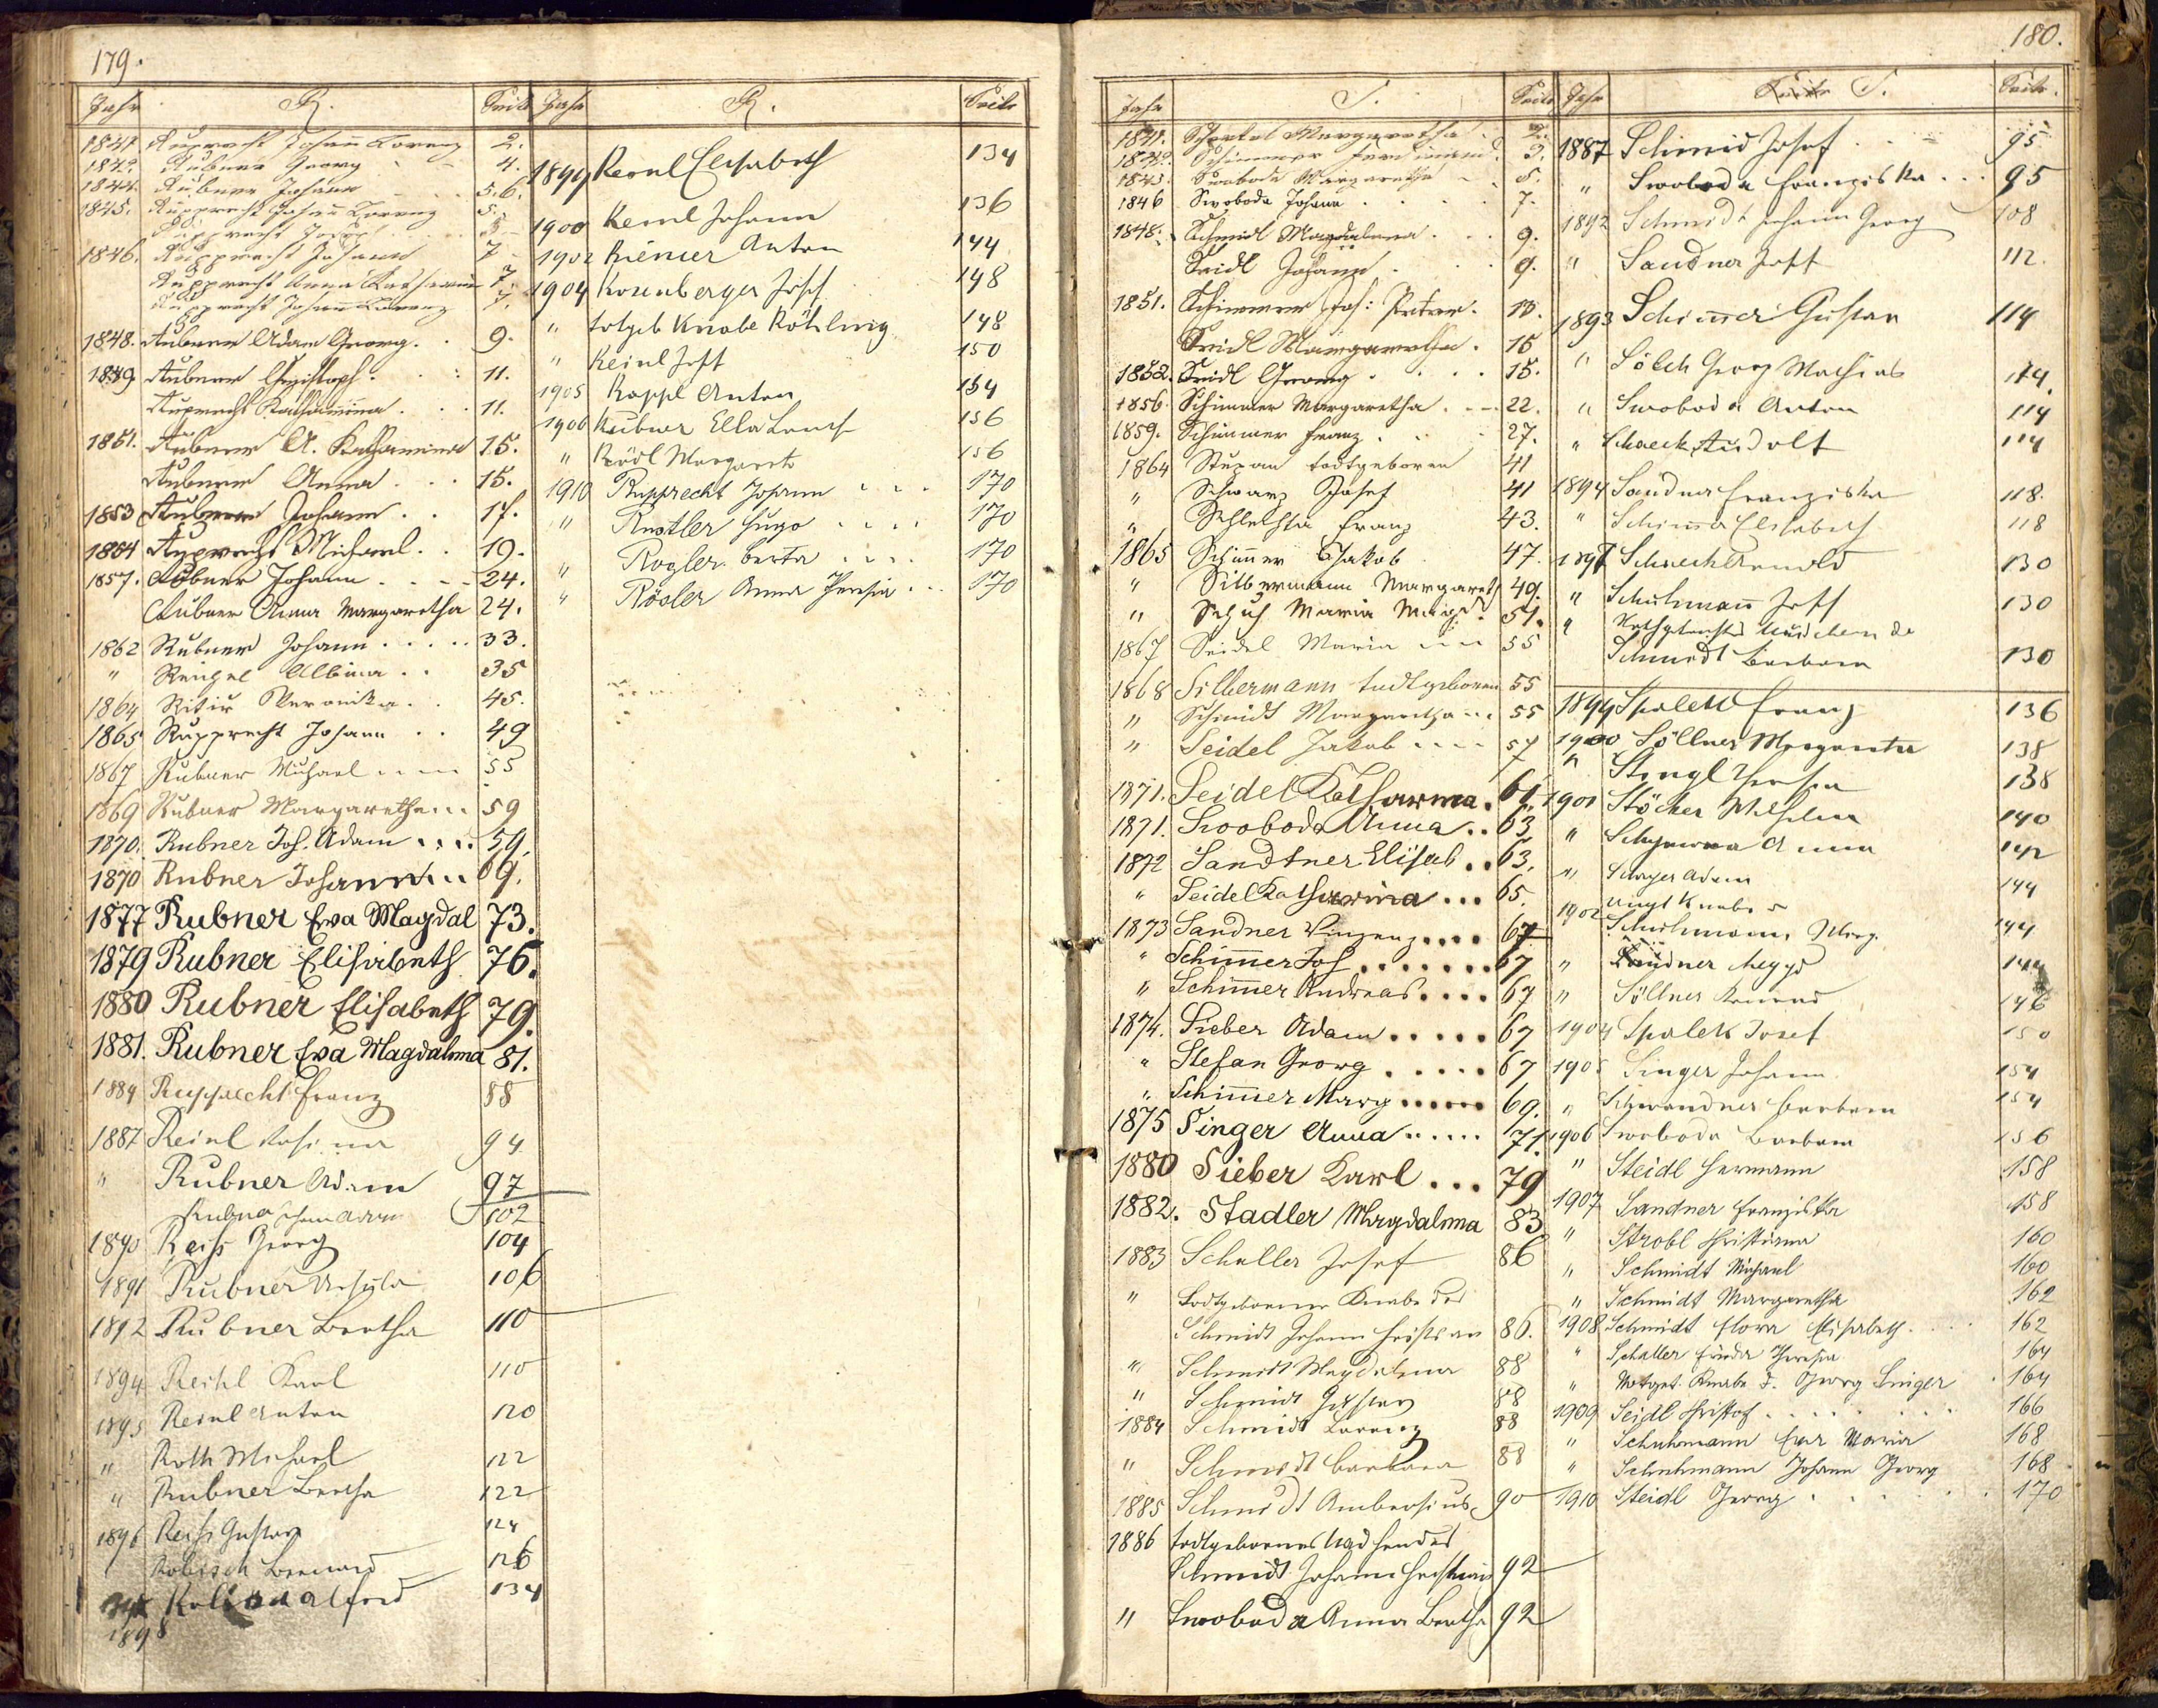 179.
Jahr R. Seite
1841 Ruprecht Johann Lorenz 2.
1842. Rubner Georg 4.
1844. Rubner Johann 5.6.
1845. Rupprecht Johann Lorenz 5.
Rupprecht Josef
1846. Rupprecht Johann 7
Rupprecht Anna Katharina 7
Rupprecht Johann Lorenz 7.
1848. Rubner Adam Georg. 9.
1849. Rubner Christoph. 11.
Ruprecht Katharina. 11.
1851. Rubner A. Katharina 15.
Rubner Anna 15.
1853 Rubner Johann 17.
1854 Ruprecht Michael. 19.
1857. Rubner Johann 24.
Rubner Anna Margaretha 24.
1862 Rubner Johann 33.
" Albina 35
1864 Veronika 45.
1865 Rupprecht Johann 49
1867 Rubner Michael 55
1869 Rubner Margaretha 59
1870. Rubner Joh. Adam 59.
1870 Rubner Johann 69.
1877 Rubner Eva Magdal 73.
1879 Rubner Elisabeth 76.
1880 Rubner Elisabeth 79.
1881. Rubner Eva Magdalena 81.
1884 Rupprecht Franz 88
1887 Reinl Rosina 94
" Rubner Adam 97
Rubner Adam 102
1890 Reiß Georg 104
1891 Rubner Ursula 106
1892 Rubner Bertha 110
1894 Karl 110
1895 Reinl Anton 120
" Roth Michael 122
" Rubner Bertha 122
1896 Reiß Gustav 124
126
1898 Alfred 134
Jahr R. Seite
1899 Reinl Elisabeth 134
1900 Reinl Johann 136
1902 Riemer Anton 144
1904 Rosenberger Josef 148
" todtgeb Knabe 148
" Reinl Josef 150
1905 Rappl Anton 154
1906 Rubner Ella 156
" Rödl Margareta 156
1910 Rupprecht Johann 170
" Rustler Hugo 170
" Rogler Berta 170
" Rösler Anna 170
180.
Jahr S. Seite
1841. Margaretha 2.
1842. Schimmer Ferdinand 3.
1843. Swoboda Margaretha 5.
1846 Swoboda Johann 7.
1848. Schmidt Magdalena 9.
Seidl Johann 9.
1851. Schimmer Joh: Peter. 13.
Seidl Margaretha. 15
1852. Seidl Georg 15.
1856. Schimmer Margaretha. 22.
1859. Schimmer Franz 27.
1864 todtgeboren 41
" Schwarz Josef 41
" Schlechta Franz 43.
1865 Schimmer Jakob 47.
" Silbermann Margareth 49.
" Schuh Maria Magd. 51.
1867 Seidel Maria 55
1868 Silbermann todtgeboren 55
" Schmidt Margaretha 55
" Seidel Jakob 57
1871. Seidel Katharina. 61.
1871. Swoboda Anna 63.
1872 Sandtner Elisab 63.
" Seidel Katharina 65.
1873 Sandner Vinzenz 67
" Schimmer Jos 67
" Schimmer Andreas 67
1874. Sieber Adam 67
" Stefan Georg 67
" Schimmer Marg 69.
1875 Singer Anna 71.
1880 Sieber Karl 79
1882. Stadler Magdalena 83
1883 Schaller Josef 86
" Todtgeborener Knabe des
Schmidt Johann Christian 86.
" Schmidt Magdalena 88
" Schmidt Gustav 88
1884 Schmidt Lorenz 88
" Schmidt Barbara 88
1885 Schmidt Ambrosius 90
1886 todtgebornes Mädchen des
Schmidt Johann Christian 92
" Swoboda Anna Bertha 92
Jahr S. Seite.
1887 Schmid Josef 95
" Swoboda Franziska 95
1892 Schmidt Johann Georg 108
" Sandner Josef 112.
1893 Schimmer Gustav 114
" Sölch Georg Mathias 114
" Swoboda Anton 114
" Schaeck Rudolf 114
1894 Sandner Franziska 118.
" Schimmer Elisabeth 118
Arnold 130
" Schuhmann Josef 130
" Mädchen
Schmidt Barbara 130
1899 Spalek Franz 136
1900 Söllner Margareta 138
" Stingl Theresia 138
1901 Stöcker 140
" Anna 142
" Adam 144
1902 Knabe
Schuhmann Marg. 144
" Sandner 144
" Söllner 146
1904 Spalek Josef 150
1905 Singer Johann 154
" Schwandner Barbara 154
1906 Swoboda Barbara 156
" Steidl Hermann 158
1907 Sandner Franziska 158
" Strobl Christiana 160
" Schmidt Michael 160
" Schmidt Margaretha 162
1908 Schmidt Flora Elisabeth. 162
" Schaller Theresia 164
" Knabe d. Georg Singer 164
1909 Seidl Christof 166
" Schuhmann Eva Maria 168
" Schuhmann Johann Georg 168
1910 Steidl Georg 170